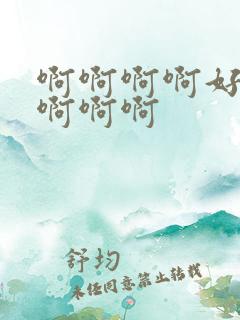 啊啊啊啊好
啊啊啊
舒均
未经同意禁止转载